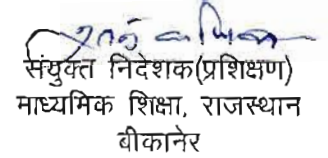 संयुक्त निदेशक(प्रशिक्षण)
माध्यमिक शिक्षा, राजस्थान
बीकानेर